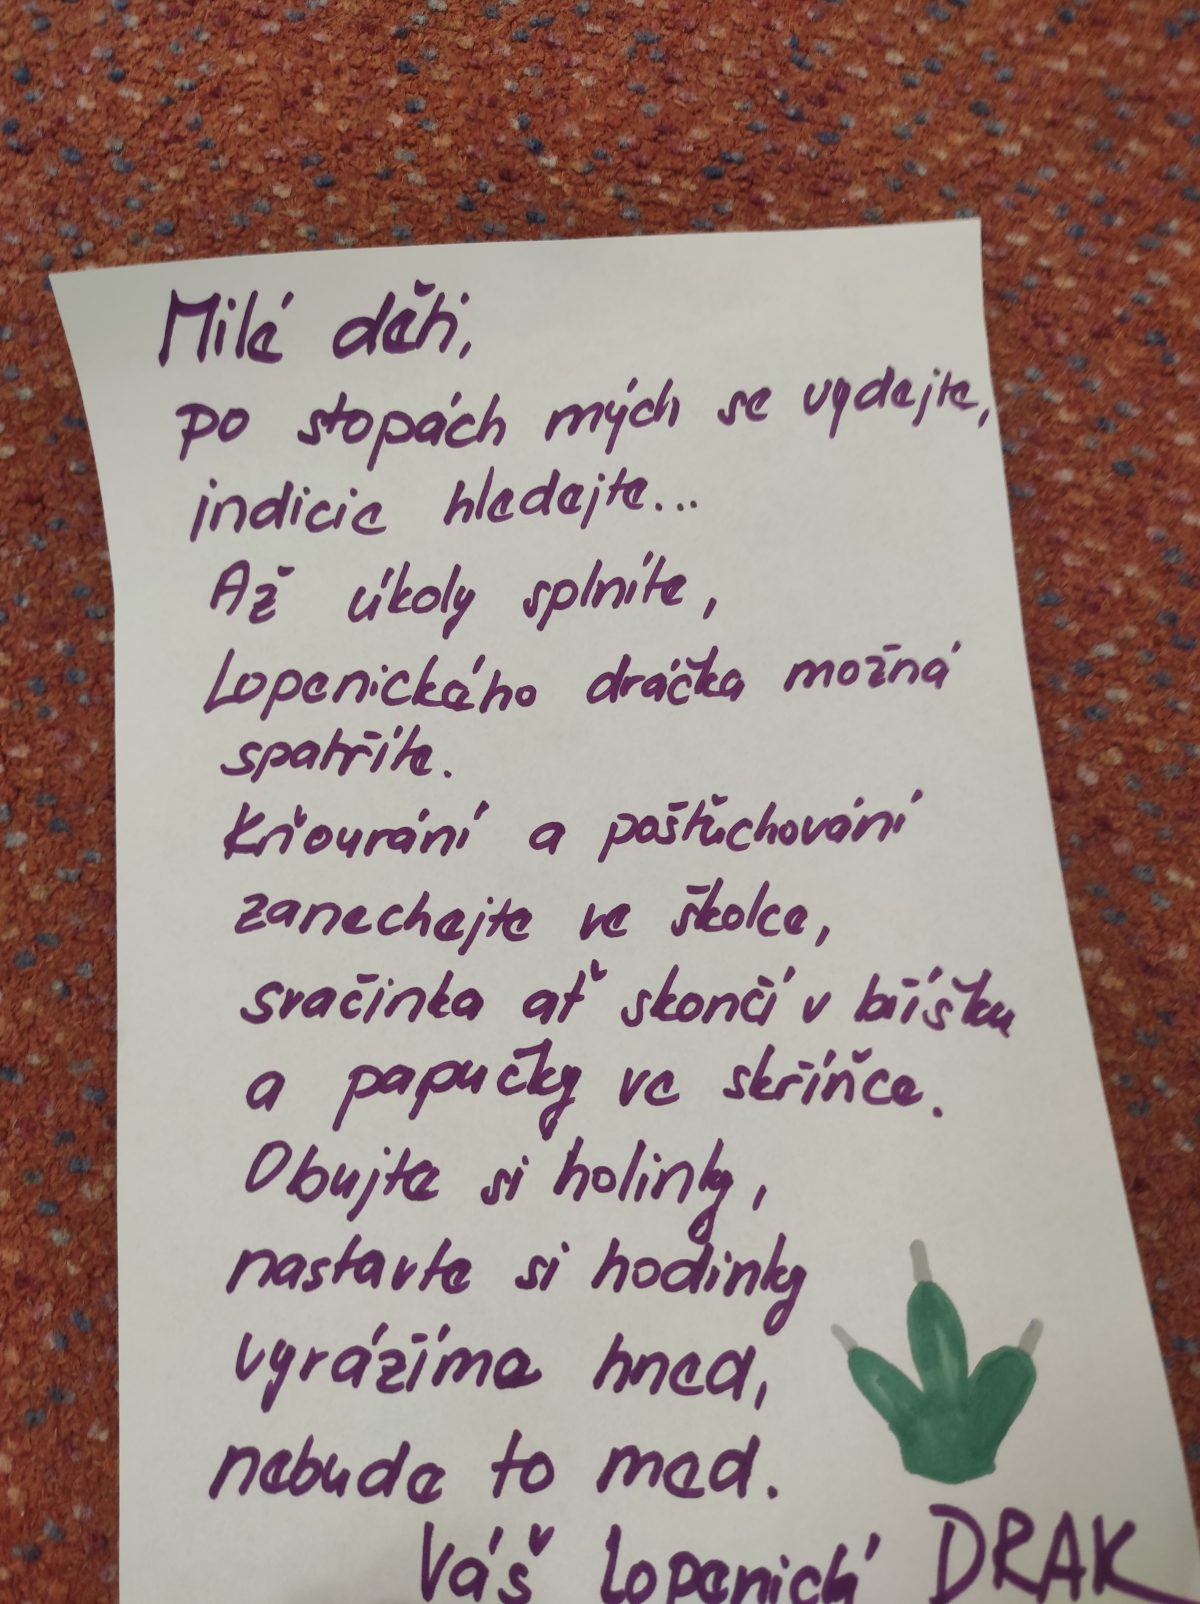 Milé děti,
po stopách mých se vydejte,
indicie hledejte...
Až úkoly splníte,
Lopenického dráčka možná
spatříte.
Kňourání a pošťuchování
zanechejte ve školce,
svačinka ať skončí v bříšku
a papučky ve skříňce.
Obujte si holinky,
nastavte si hodinky
vyrážíme hned,
nebude to med.
Váš Lopenický DRAK